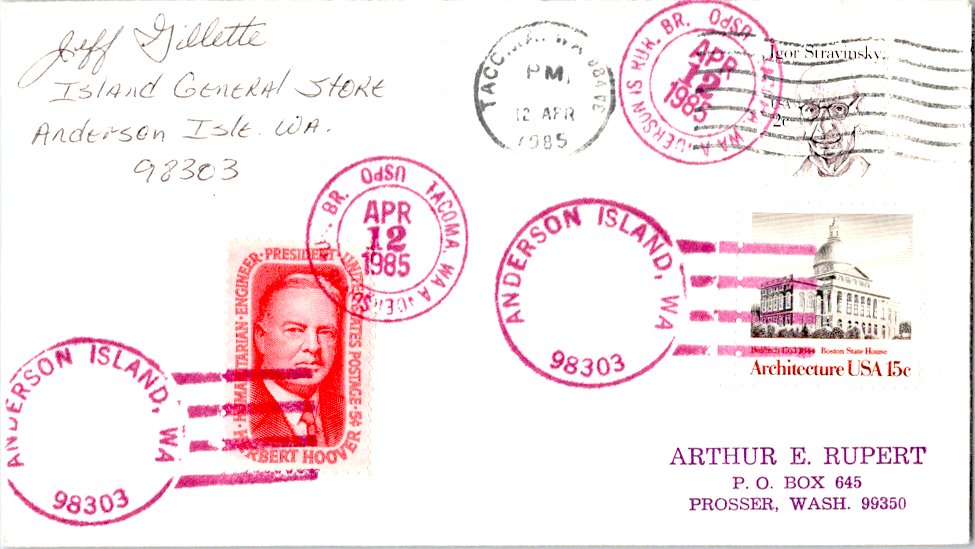 Jeff Gillette
Island General Store
Anderson Isle. WA.
98303
TACOMA, WA 984
PM,
12 APR
1985
USPO TACOMA, WA ANDERSON IS RUR. BR.
APR
12
1985
Igor Stravinsky
USA
2c
USPO TACOMA, WA ANDERSON BR.
APR
12
1985
ANDERSON ISLAND, WA
98303
Bulfinch 1763-1844 Boston State House
Architecture USA 15c
HUMANITARIAN · ENGINEER · PRESIDENT UNITED STATES POSTAGE · 5¢
HERBERT HOOVER
ANDERSON ISLAND, WA
98303
ARTHUR E. RUPERT
P. O. BOX 645
PROSSER, WASH. 99350